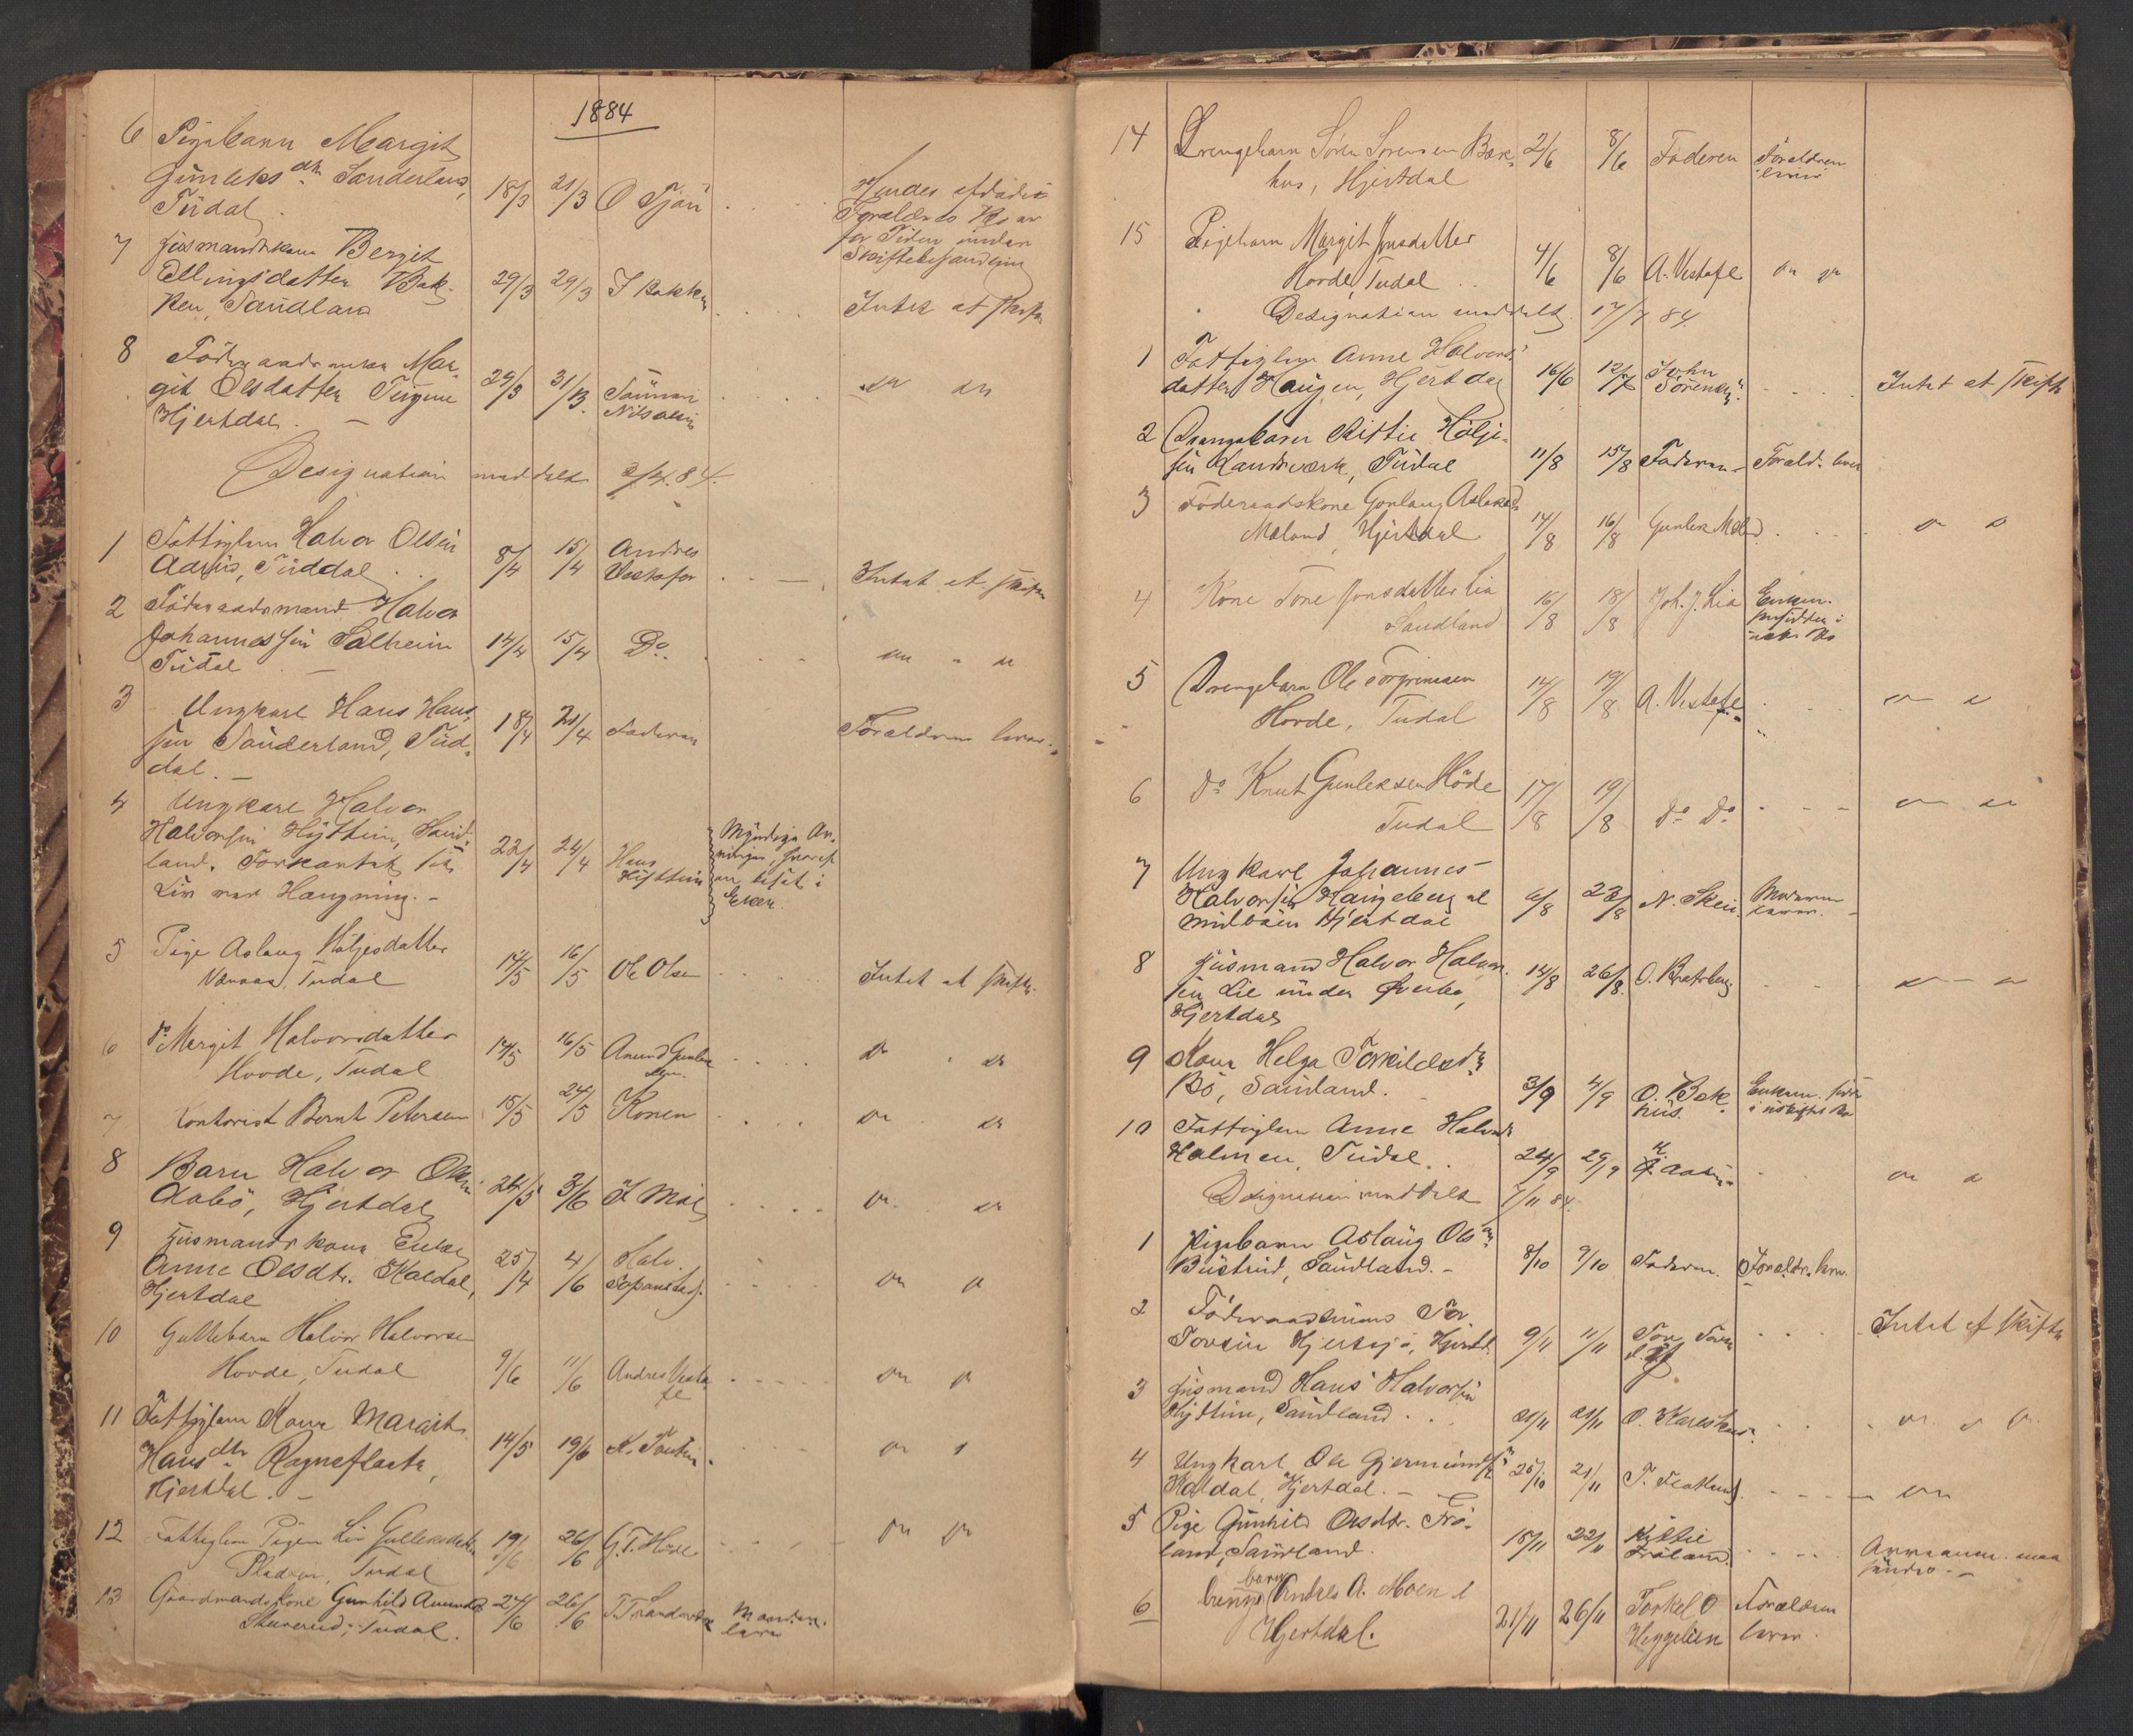 1884
6 Pigebarn Margit
Gunleksdtr Sanderland,
Tudal. 18/3 21/3 O Tjön
Hendes afdöde
Forældres Bo er
for Tiden under
Skiftebehandling
7 Husmandskone Bergit
Ellingsdatter Bak-
ken, Saudland 29/3 29/3 J Bakken Intet at skifte
8 Föderaadsenke Mar-
git Olsdatter
Hjertdal. 29/3 31/3 Nilsen do do
Designation meddelt 2/4.84.
1 Fattiglem Halvor Olsen
Tuddal 8/4 15/4 Andres
Vestafor Intet at skifte
2 Föderaadsmand Halvor
Johannessen Solheim
Tudal 14/4 15/4 Do. do do
3 Ungkarl Hans Han-
sen Sanderland, Tud-
dal. 18/4 21/4 Faderen Forældrene lever.
4 Ungkarl Halvor
Halvorsen Hyttein, Saud-
land. Forkortet sit
Liv ved Hængning. 22/4 24/4 Hans
Hyttein
Myndige Ar-
vinger,
5 Pige Aslaug Höljesdatter
Tudal 14/5 16/5 Ole Olsen Intet at skifte
6 do Margit Halvorsdatter
Hovde, Tudal 14/5 16/5 Amund Gunleksen do do
7 Kontorist Bernt Petersen 15/5 24/5 Konen do do
8 Barn Halvor Olsen
Aabö, Hjertdal 24/5 3/6 do do
9 Husmandskone Enke
Anne Olsdtr. Kaldal,
Hjertdal 25/4 4/6 Halv. do do
10 Guttebarn Halvor Halvorsen
Hovde, Tudal 9/6 11/6 Andres Vestafe do do
11 Fattiglem Kone Margit
Hansdtr Ragneflaata,
Hjertdal. 14/5 19/6 do do
12 Fattiglem Pigen Liv Gulleksdatter
Tudal 19/6 26/6 G.T. Höde do do
13 Gaardmandskone Gunhild Amundsd
Skeverud, Tudal. 24/6 26/6 T. Sanderland Manden
lever
14 Drengebarn Sören Sörensen Bak-
hus, Hjertdal 2/6 8/6 Faderen Forældren
lever
15 Pigebarn Margit Jonsdatter
Hovde, Tudal 4/6 8/6 A. Vestafe do do
Designation meddelt 17/7 84.
1 Fattiglem Anne Halvors-
datter Haugen, Hjertdal 16/6 12/7 John
Sörensen Intet at skifte
2 Drengebarn Kittil Hölje-
sen Landsverk, Tudal 11/8 15/8 Faderen Foræld. lever
3 Föderaadskone Gonlaug Aslaksd
Moland, Hjertdal 14/8 16/8 Gunlek Molnd do do
4 Kone Tone Jonsdatter Lia
Saudland 16/8 18/8 Joh. J. Lia Enkem.
hensidder i
uskt. Bo
5 Drengebarn Ole Torgrimsen
Hovde, Tudal 14/8 19/8 A. Vestafe do do
6 do Knut Gunleksen Höde
Tudal 17/8 19/8 do do do do
7 Ungkarl Johannes
Halvorsen Haugeberg
Hjertdal 6/8 23/8 N. Skeie Moderen
lever.
8 Husmand Halvor Halvor-
sen Lie under Överbö,
Hjertdal 14/8 26/8 O. Bratsberg do do
9 Kone Helga Torkildsdtr
Bö, Saudland. 3/9 4/9 O. Bak-
hus Enkem. sidder
i uskiftet Bo
10 Fattiglem Anne Halvorsd
Holmen, Tudal. 24/9 29/9 do do
Designation meddelt 7/11 84.
1 Pigebarn Aslaug Ols
Bustrud, Saudland. 8/10 9/10 Faderen. Forældr. lever.
2 Föderaadsmand Tor
Torsen Hjertsjö, Hjertd. 9/11 11/11 Tor Intet at skifte
3 Husmand Hans Halvorsen
Hyttein, Saudland 21/11 21/11 O. do do
4 Ungkarl Ole Gjermunds
Kaldal, Hjertdal. 25/10 21/11 T. Flatland do
5 Pige Gunhild Olsdtr. Frö-
land, Saudland. 18/11 22/11 Kittil
Fröland.
6 barn
Drenge Andres A. Moen i
Hjertdal. 21/11 26/11 Torkel O
Heggelien Forældren
lever.